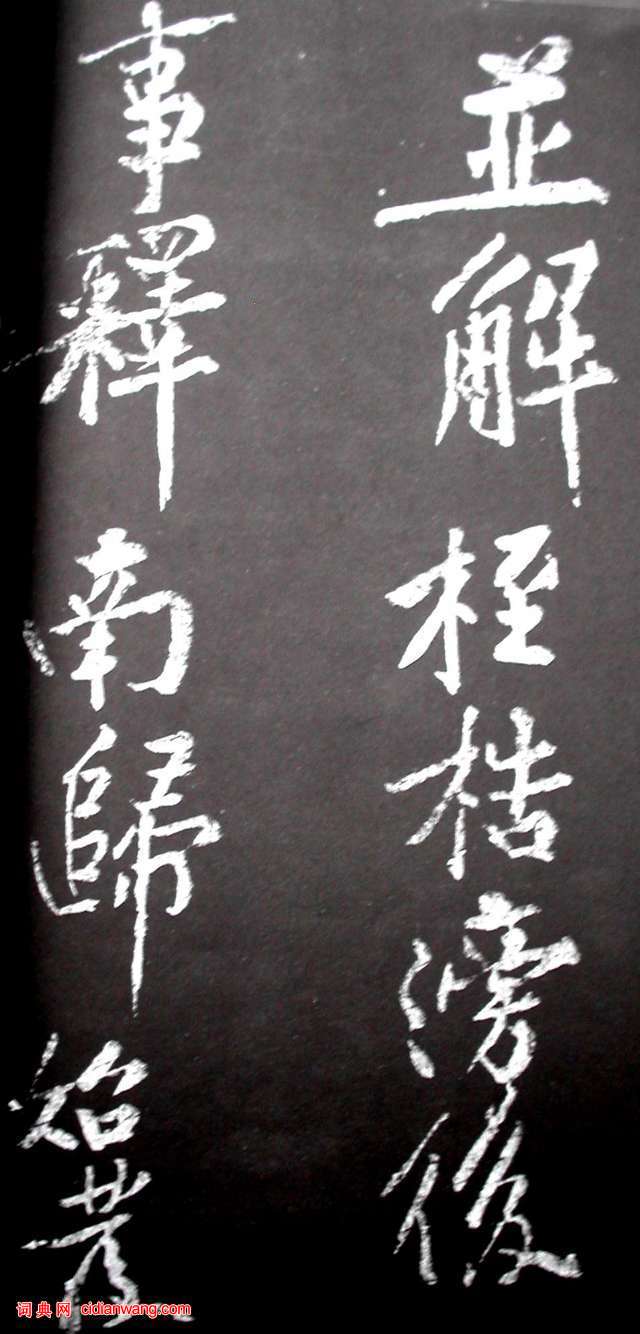 並解桎梏滂後
事釋南歸始發
词典网 cidianwang.com